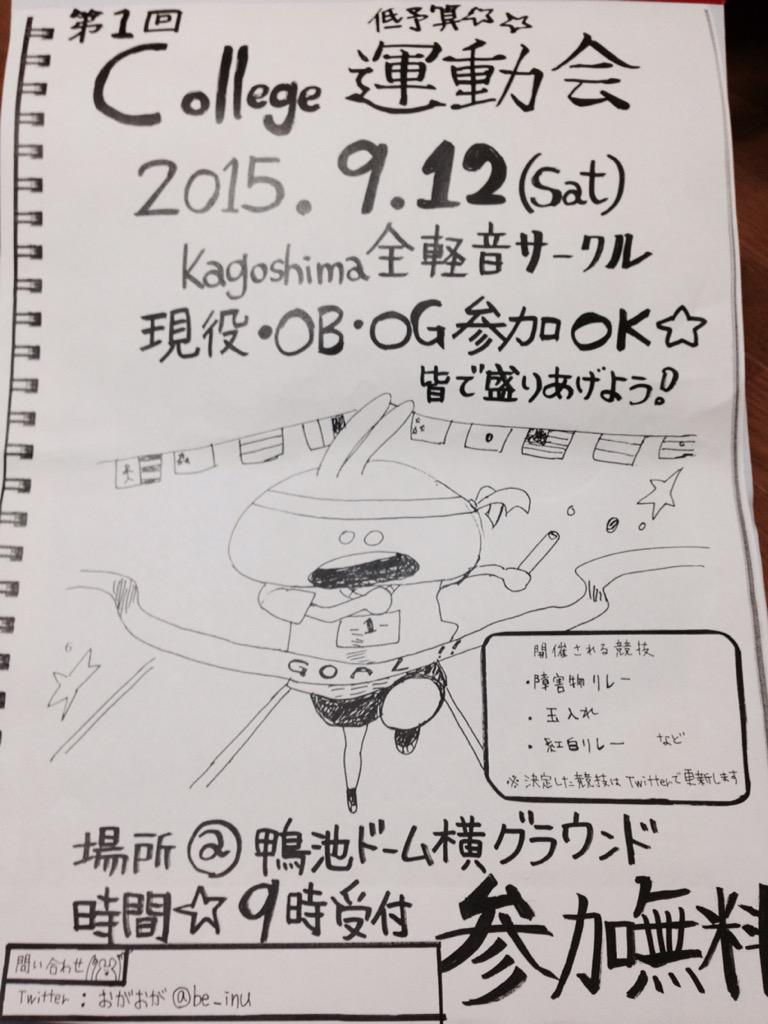 第1回
低予算☆☆
College 運動会
2015.9.12(Sat)
Kagoshima全軽音サークル
現役・OB・OG参加OK☆
皆で盛りあげよう!
1
GOAL!!
開催される競技
・障害物リレー
・玉入れ
・紅白リレー など
※決定した競技はTwitterで更新します
場所@鴨池ドーム横グラウンド
時間☆9時受付
参加無料
問い合わせ
Twitter:おがおが@be_inu